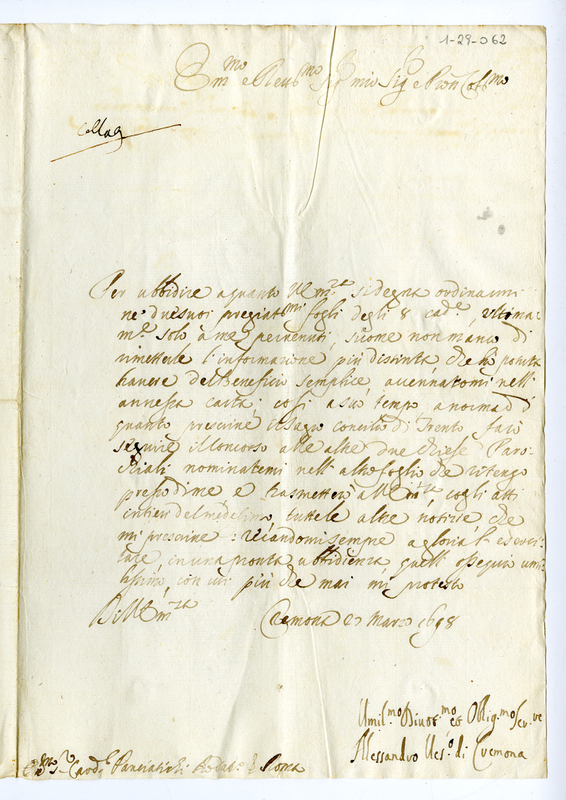 1-29-062
Em.mo e Reu.mo Sig.r mio Sig.r e Pron Col.mo
Per ubbidire a quanto V.Em.za si degna ordinarmi
ne' due suoi pregiat.mi fogli degli 8 cad.e, ultima-
m.te solo à me pervenuti, sicome non manco di
rimetterle l'informazione più distinta che hò potuta
havere del Benefico semplice, accennatomi nell'
annessa carta; così à suo tempo a norma di
quanto prescriue il Sagro Concilio di Trento farò
seguire il Concorso alle altre due Chiese Paro-
chiali nominatemi nell'altro foglio che ritengo
presso di me e trasmetterò all'Em.za V.ra cogli atti
intieri del medesimo, tutte le altre notizie che
mi prescriue: recandomi sempre a gloria l'eserci-
tare, in una pronta ubbidienza, quell'ossequio umi-
lissimo, con cui più che mai mi protesto
Di V.Em.za Cremona 27 Marzo 1698
Umil.mo Diuot.mo et Oblig.mo Ser.re
Alessandro Ves.o di Cremona
Em.mo S.r Card.l Panciatichi Prodat.o Roma